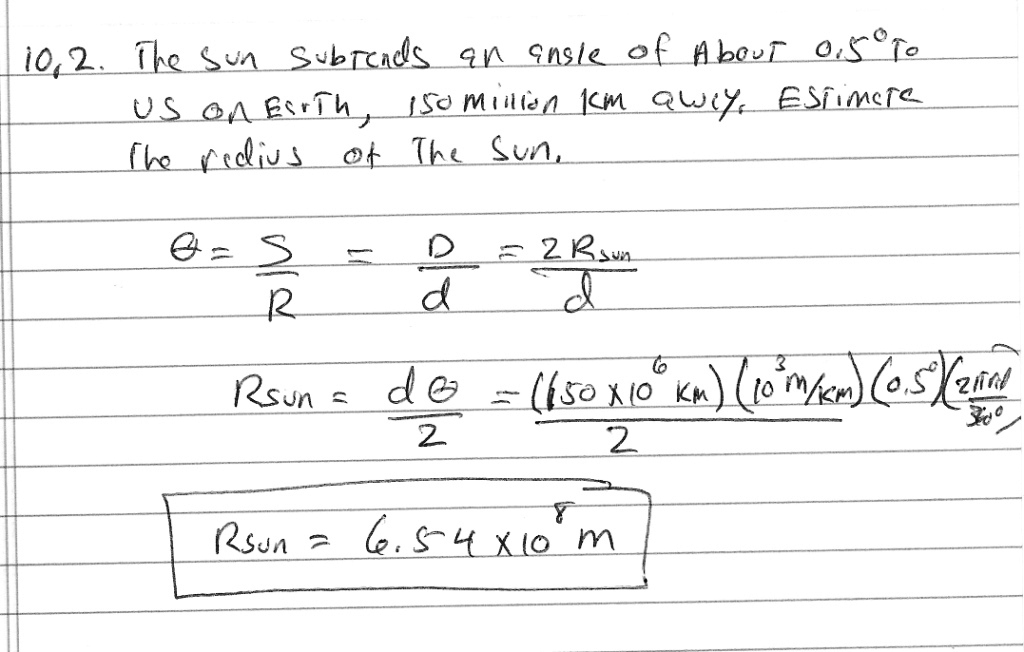 10,2. The Sun Subtends an angle of About 0.5° To
US on Earth, 150 million km away. Estimate
The radius of The Sun.
θ = S/R = D/d = 2 Rsun/d
Rsun = dθ/2 = (150 x 10^6 km) (10^3 m/km) (0.5°) (2π rad/360°)/2
Rsun = 6.54 x 10^8 m